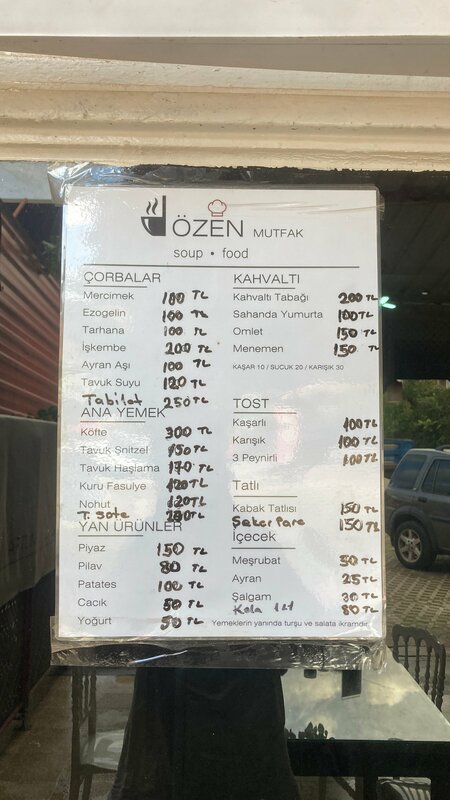 ÖZEN MUTFAK
soup • food
ÇORBALAR
Mercimek 100 TL
Ezogelin 100 TL
Tarhana 100 TL
İşkembe 200 TL
Ayran Aşı 100 TL
Tavuk Suyu 120 TL
250 TL
ANA YEMEK
Köfte 300 TL
Tavuk Snitzel 150 TL
Tavuk Haşlama 170 TL
Kuru Fasulye 120 TL
Nohut 120 TL
T. Sote TL
YAN ÜRÜNLER
Piyaz 150 TL
Pilav 80 TL
Patates 100 TL
Cacık 50 TL
Yoğurt 50 TL
KAHVALTI
Kahvaltı Tabağı 200 TL
Sahanda Yumurta 100 TL
Omlet 150 TL
Menemen 150 TL
KAŞAR 10 / SUCUK 20 / KARIŞIK 30
TOST
Kaşarlı 100 TL
Karışık 100 TL
3 Peynirli 100 TL
Tatlı
Kabak Tatlısı 150 TL
Şekerpare 150 TL
İçecek
Meşrubat 50 TL
Ayran 25 TL
Şalgam 30 TL
Kola 1 Lt 80 TL
Yemeklerin yanında turşu ve salata ikramdır.